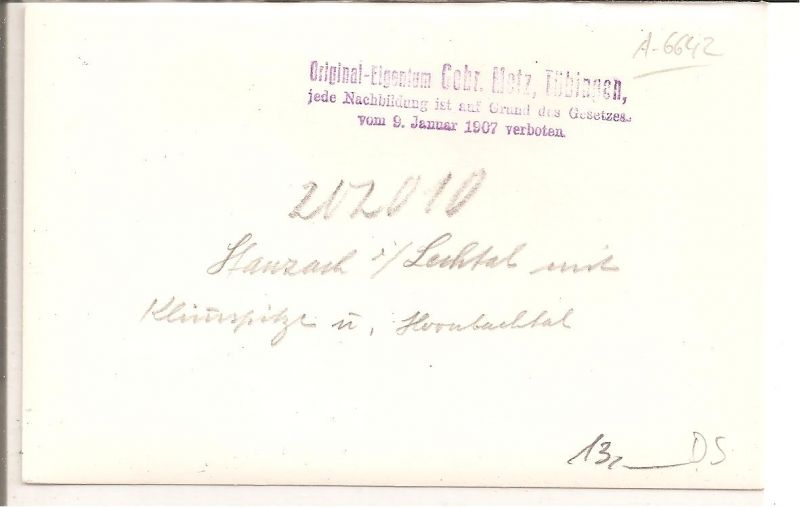 A-6642
Original-Eigentum Gebr. Metz, Tübingen,
jede Nachbildung ist auf Grund des Gesetzes
vom 9. Januar 1907 verboten.
202010
Stanzach i/ Lechtal mit
Klimspitze u. Hornbachtal
13,— DS